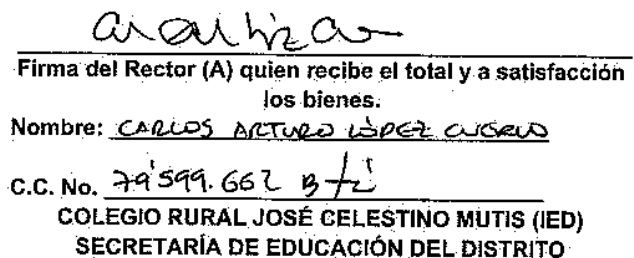 Firma del Rector (A) quien recibe el total y a satisfacción
los bienes.
Nombre: CARLOS ARTURO LÓPEZ
C.C. No. 79'599.662
COLEGIO RURAL JOSÉ CELESTINO MUTIS (IED)
SECRETARÍA DE EDUCACIÓN DEL DISTRITO